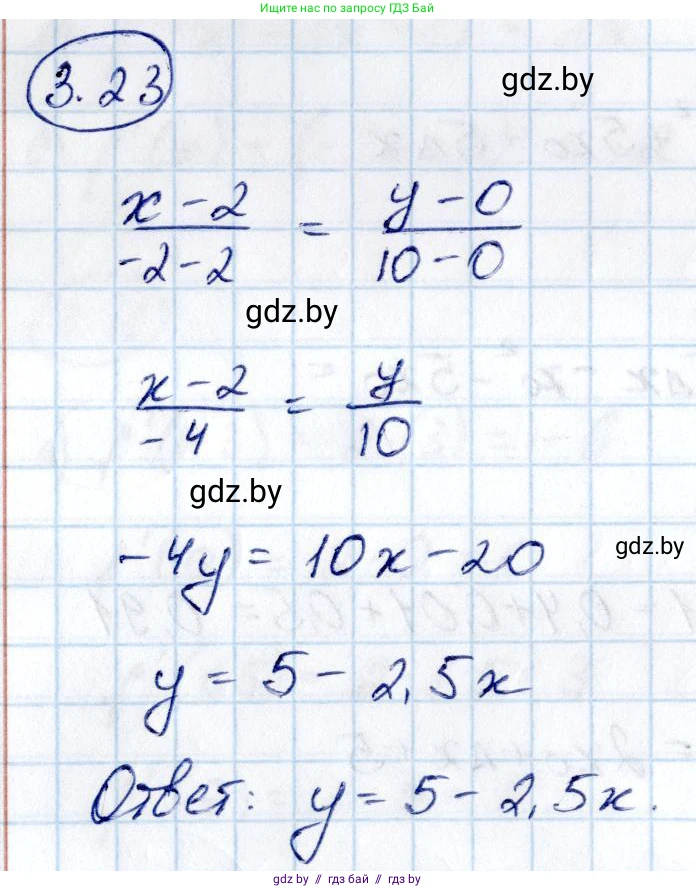 Ищите нас по запросу ГДЗ Бай
3.23
gdz.by
x - 2 / -2 - 2 = y - 0 / 10 - 0
gdz.by
x - 2 / -4 = y / 10
gdz.by
-4y = 10x - 20
gdz.by
y = 5 - 2,5x
Ответ: y = 5 - 2,5x.
gdz.by // гдз бай // гдз by